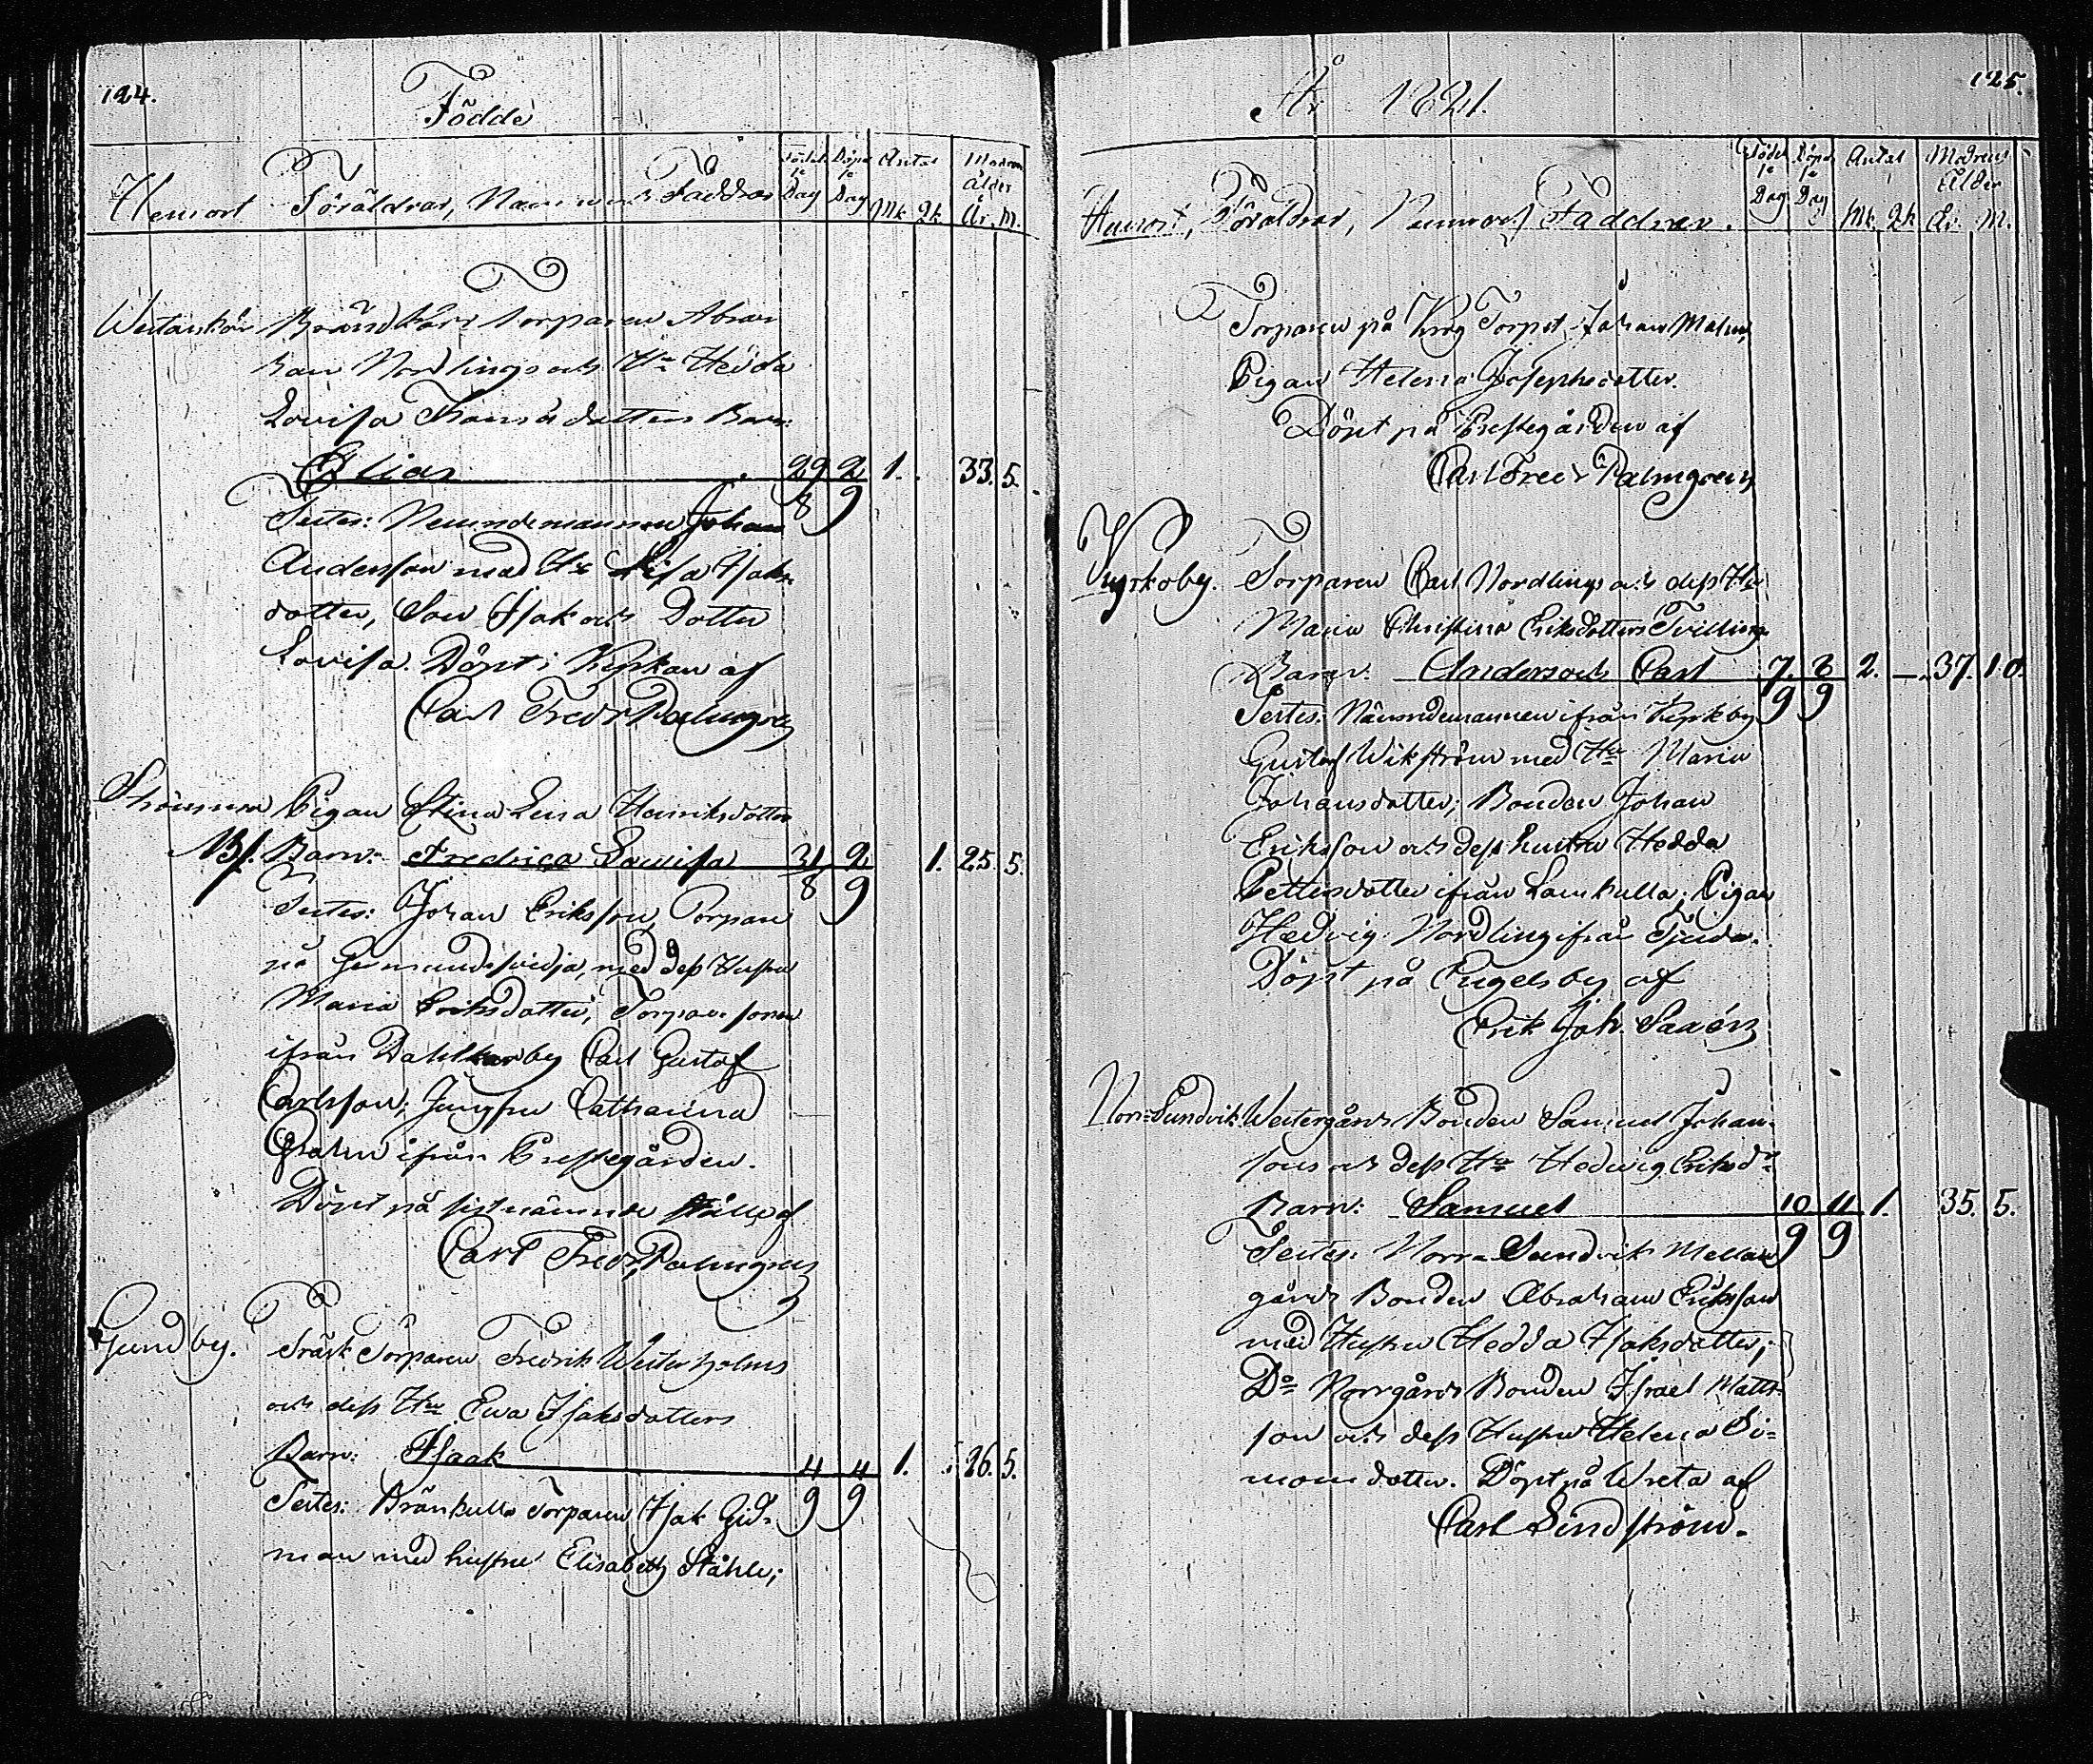 124.
Födde
Hemort Föräldrar, Namn och Faddrar
Födelse Dag
Döpelse Dag
Antal
Mk. Qk
Modrens Ålder
År. M.
Westankärr Brändkärr Torparen Abra-
ham Nordlings och Hu Hedda
Lovisa Thomædotters Barn:
Elias 29/8 2/9 1. 33. 5.
Testes: Nemndemannen Johan
Andersson med Hu Lisa Isaks-
dotter, Son Isak och Dotter
Lovisa. Döpt i Kyrkan af
Carl Fredr Palmgren
Strömma Pigan Stina Lena Henriksdotter
Barn: Fredrica Lowisa 31/8 2/9 1. 25. 5.
Testes: Johan Eriksson, Torpare
på Germundsvidja, med dess Hustru
Maria Eriksdotter, Torpare sonen
ifrån Dahlkarby Carl Gustaf
Carlsson; Jungfru Catharina
Grahn ifrån Prestegården.
Döpt på sistnämnde ställe af
Carl Fredr. Palmgren
Gundby. Träsk Torparen Fredrik Westerholms
och dess Hu Ewa Isaksdotters
Barn: Isaak 4/9 4/9 1. 26. 5.
Testes: Brännkulla Torparen Isak Gid-
man med hustru Elisabeth Ståhle;
125.
År 1821.
Hemort, Föräldrar, Namn och Faddrar.
Födelse Dag
Döpelse Dag
Antal
Mk. Qk
Modrens Ålder
År. M.
Torparen på Krog Torpet Johan Malm,
Pigan Helena Josephsdotter.
Döpt på Prestegården af
Carl Fredr Palmgren
Kyrkoby. Torparen Carl Nordlings och dess Hu
Maria Christina Eriksdotters Tvilling-
Barn: Anders och Carl 7/9 8/9 2. — 37. 10.
Testes: Nämndemannen ifrån Kyrkby
Gustaf Wikström med Hu Maria
Johansdotter; Bonden Johan
Eriksson och dess hustru Hedda
Pettersdotter ifrån Lamkulla; Pigan
Hedvig Nordling ifrån Tjuda.
Döpt på Engelsby af
Erik Joh. Saxén
Norr-Sundvik Westergårds Bonden Samuel Johan-
sons och dess Hu Hedwig Eriksdr
Barn: Samuel 10/9 11/9 1. 35. 5.
Testes: Norr-Sundviks Mellan-
gårds Bonden Abraham Eriksson
med Hustru Hedda Isaksdotter;
Do Norrgårds Bonden Israel Matts-
son och dess Hustru Helena Si-
monsdotter. Döpt på Wreta af
Carl Lindström.